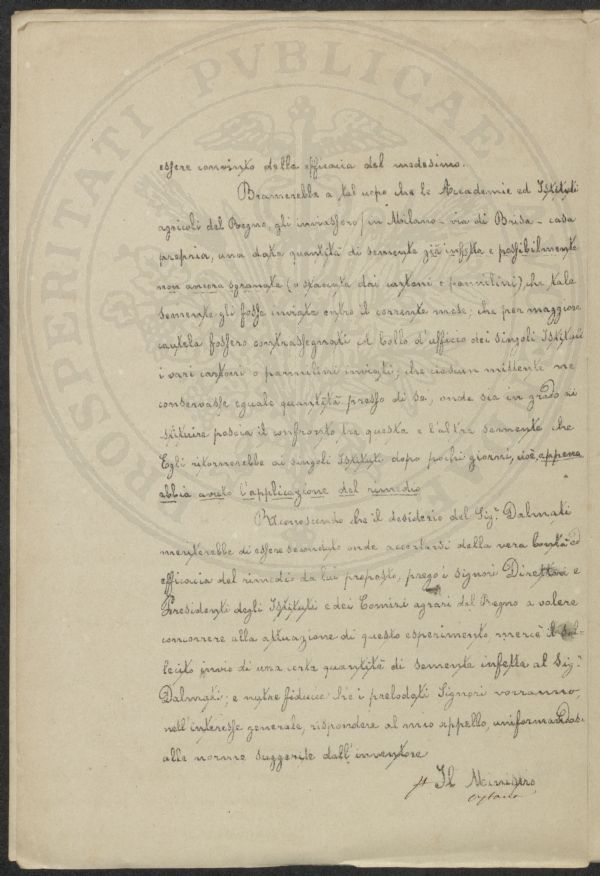 PROSPERITATI PVBLICAE
essere convinto della efficacia del medesimo.
Bramerebbe a tal uopo che le Accademie ed Istituti
agricoli del Regno, gli inviassero in Milano - via di Brisa - casa
propria, una data quantità di semente già infetta e possibilmente
non ancora sgranata (o staccata dai cartoni e pannilini), che tale
semente gli fosse inviata entro il corrente mese; che per maggiore
cautela fossero contrassegnati col bollo d'ufficio dei singoli Istituti
i vari cartoni o pannilini inviati; che ciascun mittente ne
conservasse eguale quantità presso di se, onde sia in grado di
istituire poscia il confronto tra questa e l'altra semente che
Egli ritornerebbe ai singoli Istituti dopo pochi giorni, cioè, appena
abbia avuto l'applicazione del rimedio
Riconoscendo che il desiderio del Sig.r Dalmati
meriterebbe di essere secondato onde accertarsi della vera bontà ed
efficacia del rimedio da lui proposto, prego i signori Direttori e
Presidenti degli Istituti e dei Comizi agrari del Regno a volere
concorrere alla attuazione di questo esperimento, mercè il sol-
lecito invio di una certa quantità di sementa infetta al Sig.r
Dalmati; e nutre fiducia che i prelodati Signori vorranno,
nell'interesse generale, rispondere al mio appello, uniformandosi
alle norme suggerite dall'inventore
Il Ministro